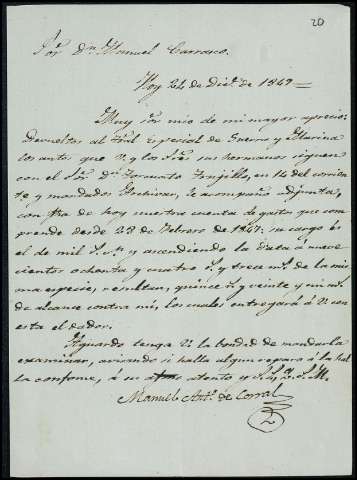 20
Sor. Dn. Manuel Carrasco.
Hoy 24 de Dice. de 1849
Muy Sor mio de mi mayor aprecio:
Devueltos al Tral especial de Guerra y Marina
los autos que V. y los Sres sus hermanos siguen
con el Sor Dn Fortunato Trujillo, en 14 del corrien
te, y mandados Archivar, le acompaño adjunta,
con fha de hoy nuestra cuenta de gastos que com
prende desde 23 de Febrero de 1847: su cargo es
el de mil y ascendiendo la Data á nueve
cientos ochenta y cuatro y trece ms. de la mis
ma especie, resultan, quince y veinte y un ms.
de alcance contra mi, los cuales entregará á V. con
esta el dador.
Aguardo tenga V. la bondad de mandarla
examinar, avisando si halla algun reparo ó la ha
lla conforme, á su atento y S. S. Q. S. M. B.
Manuel Anto. de Corral